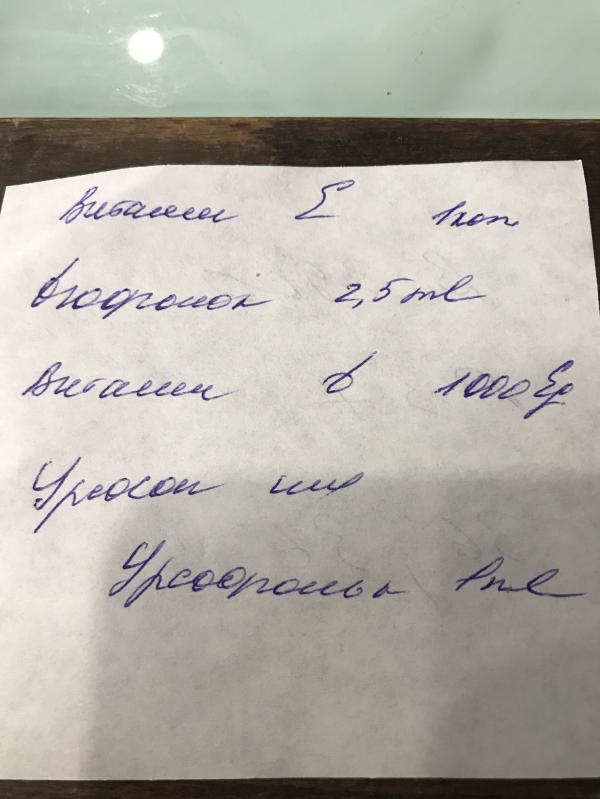 Витамин E 1кап
Дюфолак 2,5 ml
Витамин D 1000 Ед
Урсосан или
Урсофальк 1 ml